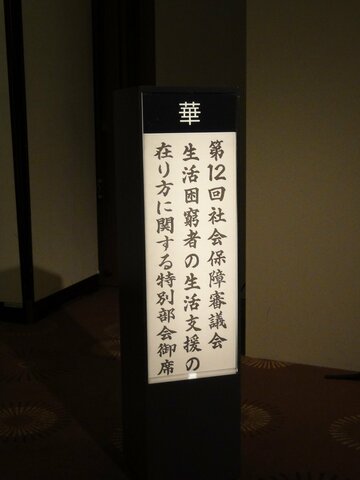 華
第12回社会保障審議会
生活困窮者の生活支援の
在り方に関する特別部会御席